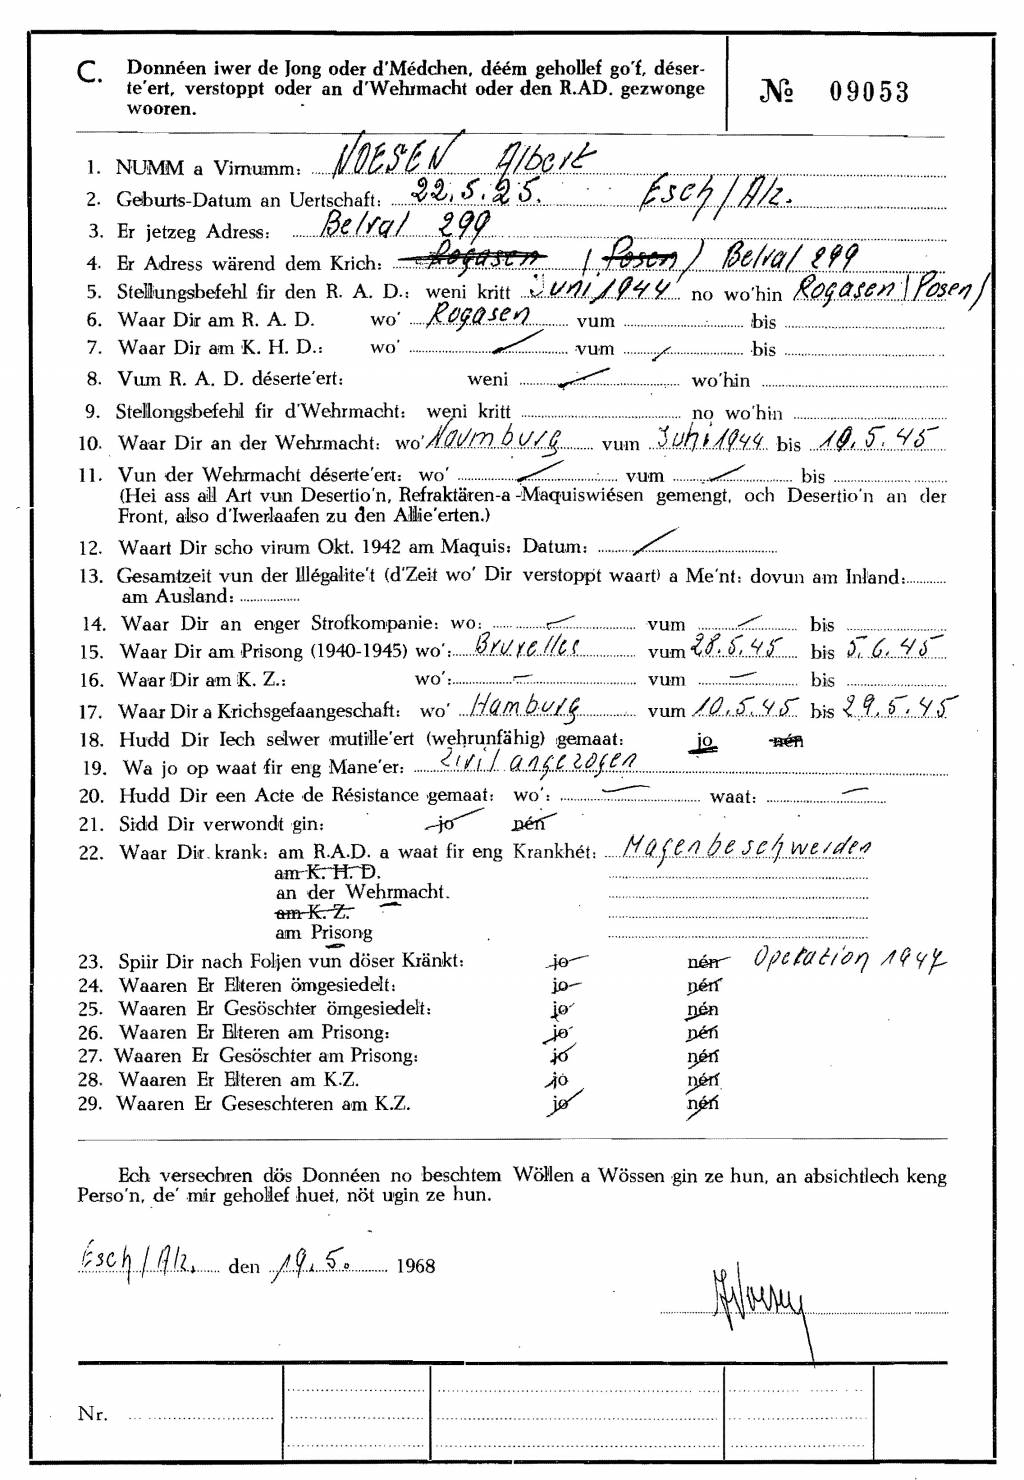 C. Donnéen iwer de Jong oder d'Médchen, déém gehollef go'f, déser-
te'ert, verstoppt oder an d'Wehrmacht oder den R.AD. gezwonge
wooren.
№ 09053
1. NUMM a Virnumm: NOESEN Albert
2. Geburts-Datum an Uertschaft: 22.5.25. Esch/Alz.
3. Er jetzeg Adress: Belval 299
4. Er Adress wärend dem Krich: Rogasen (Posen) Belval 299
5. Stellungsbefehl fir den R. A. D.: weni kritt Juni 1944 no wo'hin Rogasen (Posen)
6. Waar Dir am R. A. D. wo' Rogasen vum bis
7. Waar Dir am K. H. D.: wo' vum bis
8. Vum R. A. D. déserte'ert: weni wo'hin
9. Stellongsbefehl fir d'Wehrmacht: weni kritt no wo'hin
10. Waar Dir an der Wehrmacht: wo' Naumburg vum Juni 1944 bis 10.5.45
11. Vun der Wehrmacht déserte'ert: wo' vum bis
(Hei ass all Art vun Desertio'n, Refraktären-a-Maquiswiésen gemengt, och Desertio'n an der
Front, also d'Iwerlaafen zu den Allie'erten.)
12. Waart Dir scho virum Okt. 1942 am Maquis: Datum:
13. Gesamtzeit vun der Illégalite't (d'Zeit wo' Dir verstoppt waart) a Me'nt: dovun am Inland:
am Ausland:
14. Waar Dir an enger Strofkompanie: wo: vum bis
15. Waar Dir am Prisong (1940-1945) wo': Bruxelles vum 28.5.45 bis 5.6.45
16. Waar Dir am K. Z.: wo': vum bis
17. Waar Dir a Krichsgefaangeschaft: wo' Hamburg vum 10.5.45 bis 29.5.45
18. Hudd Dir Iech selwer mutille'ert (wehrunfähig) gemaat: jo nén
19. Wa jo op waat fir eng Mane'er: Zivil angezogen
20. Hudd Dir een Acte de Résistance gemaat: wo': waat:
21. Sidd Dir verwondt gin: jo nén
22. Waar Dir krank: am R.A.D. a waat fir eng Krankhét: Magenbeschwerden
am K. H. D.
an der Wehrmacht.
am K. Z.
am Prisong
23. Spiir Dir nach Foljen vun döser Kränkt: jo nén Operation 1947
24. Waaren Er Elteren ömgesiedelt: jo nén
25. Waaren Er Gesöschter ömgesiedelt: jo nén
26. Waaren Er Elteren am Prisong: jo nén
27. Waaren Er Gesöschter am Prisong: jo nén
28. Waaren Er Elteren am K.Z. jo nén
29. Waaren Er Geseschteren am K.Z. jo nén
Ech versechren dös Donnéen no beschtem Wöllen a Wössen gin ze hun, an absichtlech keng
Perso'n, de' mir gehollef huet, nöt ugin ze hun.
Esch/Alz. den 19.5. 1968
ANoesen
Nr.